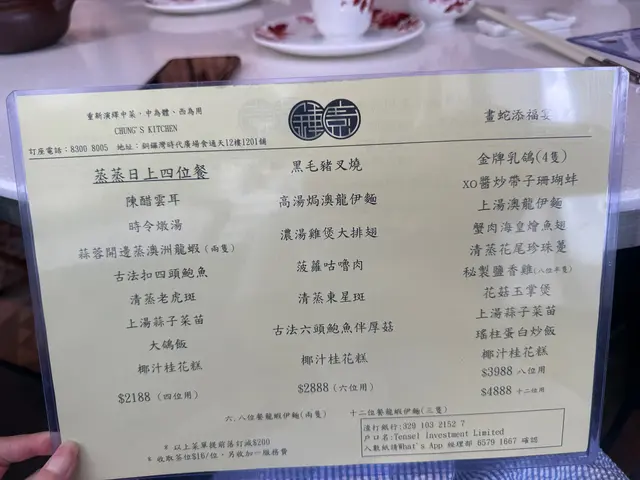 重新演繹中菜，中為體、西為用
CHUNG'S KITCHEN
畫蛇添福宴
訂座電話：8300 8005 地址：銅鑼灣時代廣場食通天12樓1201舖
蒸蒸日上四位餐
陳醋雲耳
時令燉湯
蒜蓉開邊蒸澳洲龍蝦(兩隻)
古法扣四頭鮑魚
清蒸老虎斑
上湯蒜子菜苗
大鴿飯
椰汁桂花糕
$2188 (四位用)
黑毛豬叉燒
高湯焗澳龍伊麵
濃湯雞煲大排翅
菠蘿咕嚕肉
清蒸東星斑
古法六頭鮑魚伴厚菇
椰汁桂花糕
$2888 (六位用)
金牌乳鴿(4隻)
XO醬炒帶子珊瑚蚌
上湯澳龍伊麵
蟹肉海皇燴魚翅
清蒸花尾珍珠躉
秘製鹽香雞(八位半隻)
花菇玉掌煲
上湯蒜子菜苗
瑤柱蛋白炒飯
椰汁桂花糕
$3988 八位用
$4888 十二位用
六.八位餐龍蝦伊麵(兩隻) 十二位餐龍蝦伊麵(三隻)
以上菜單提前落訂減$200
收取茶位$16/位，另收加一服務費
渣打銀行:329 103 2152 7
戶口名:Tensel Investment Limited
入數紙請What's App 經理部 6579 1667 確認